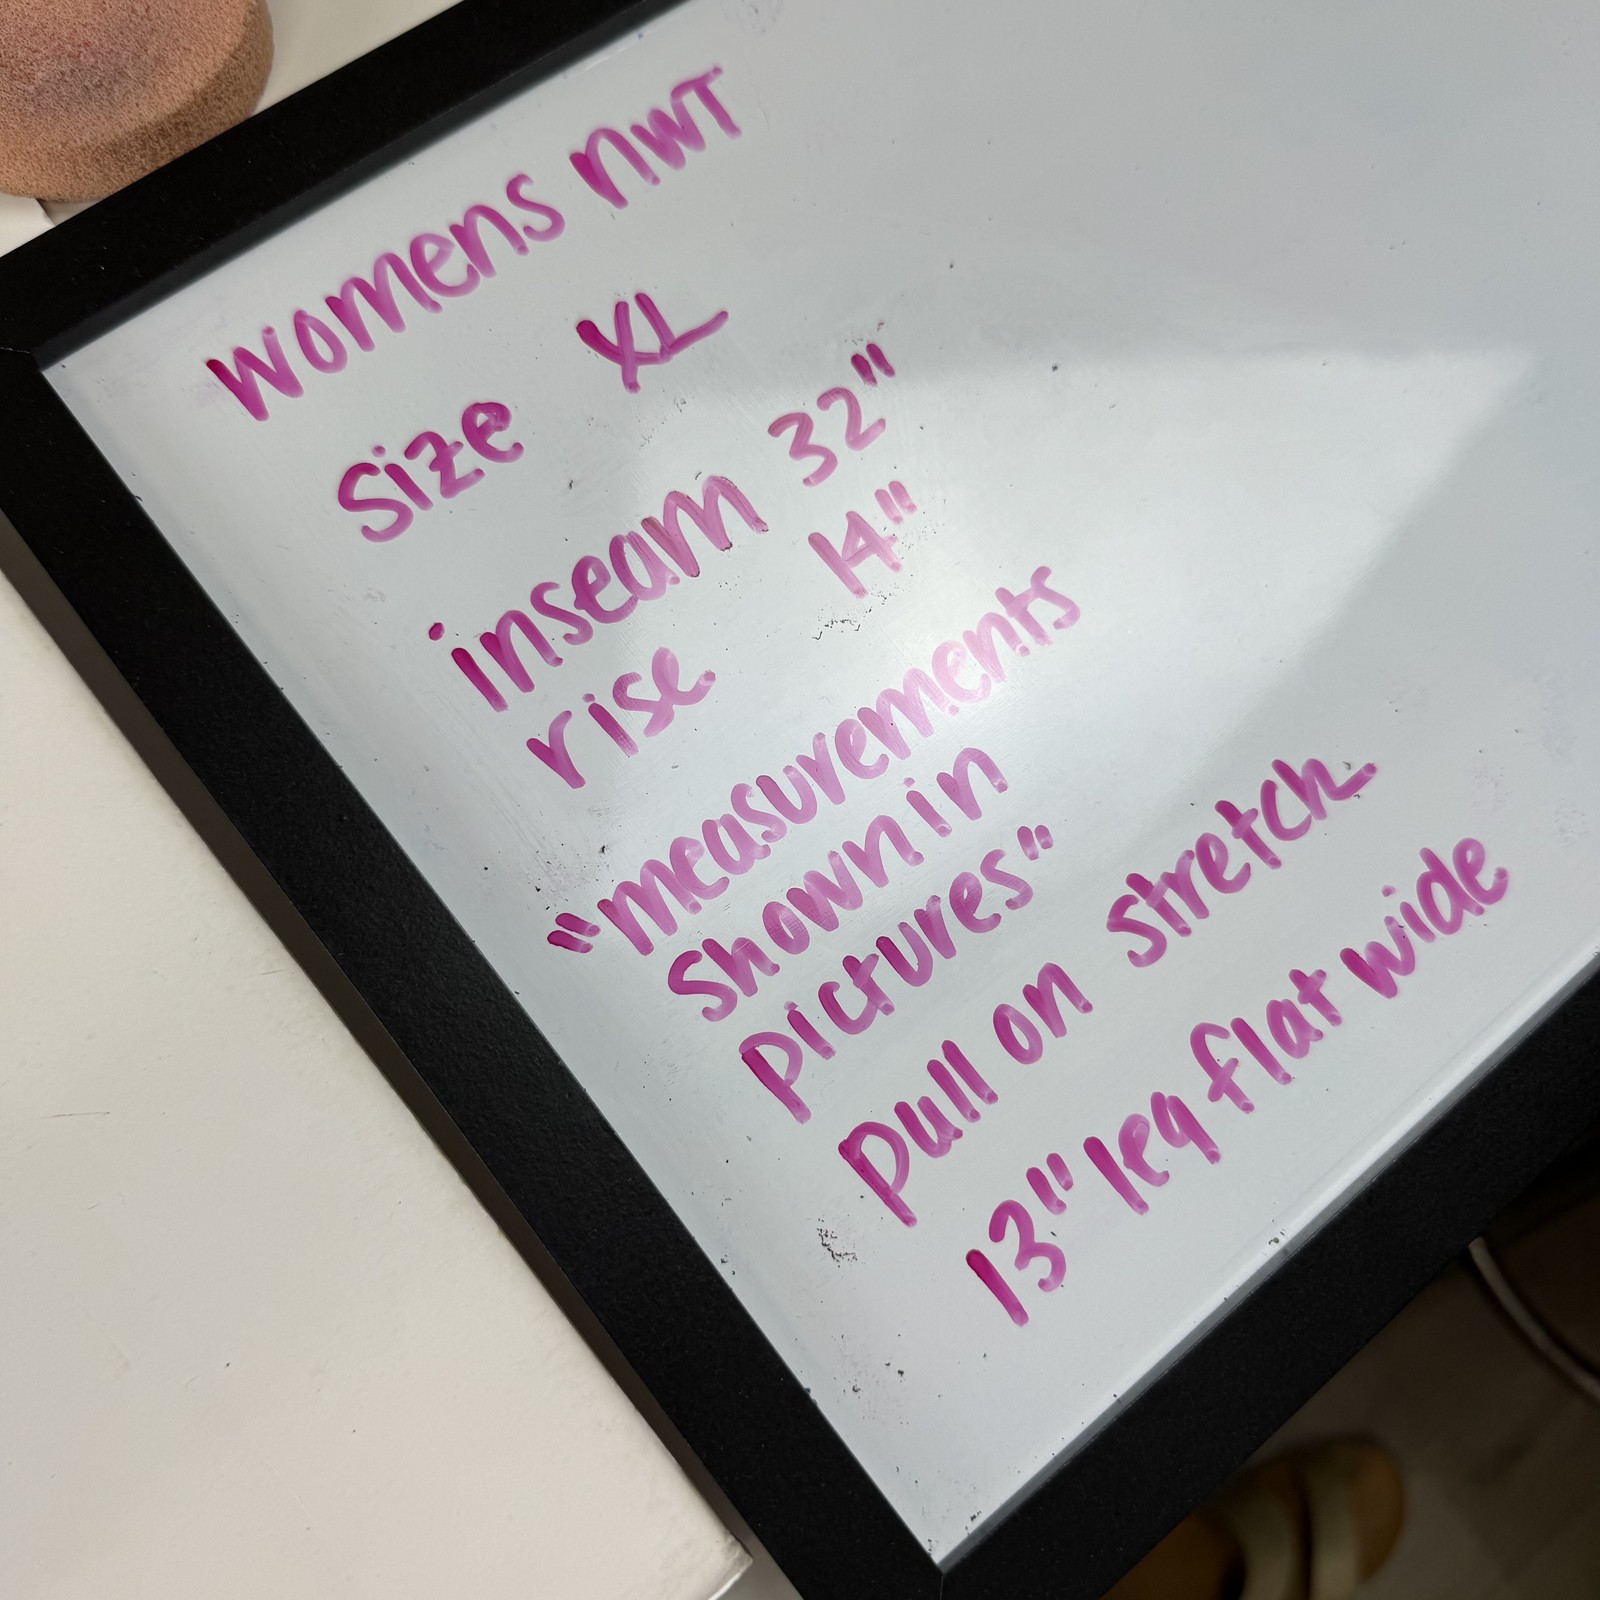 womens nwt
size XL
inseam 32"
rise 14"
"measurements
shown in
pictures"
pull on stretch
13" leg flat wide